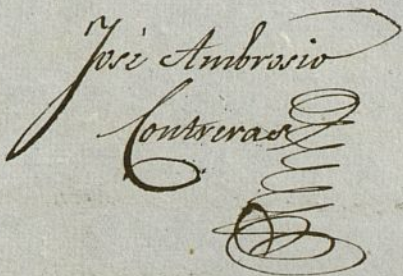 José Ambrosio
Contreras